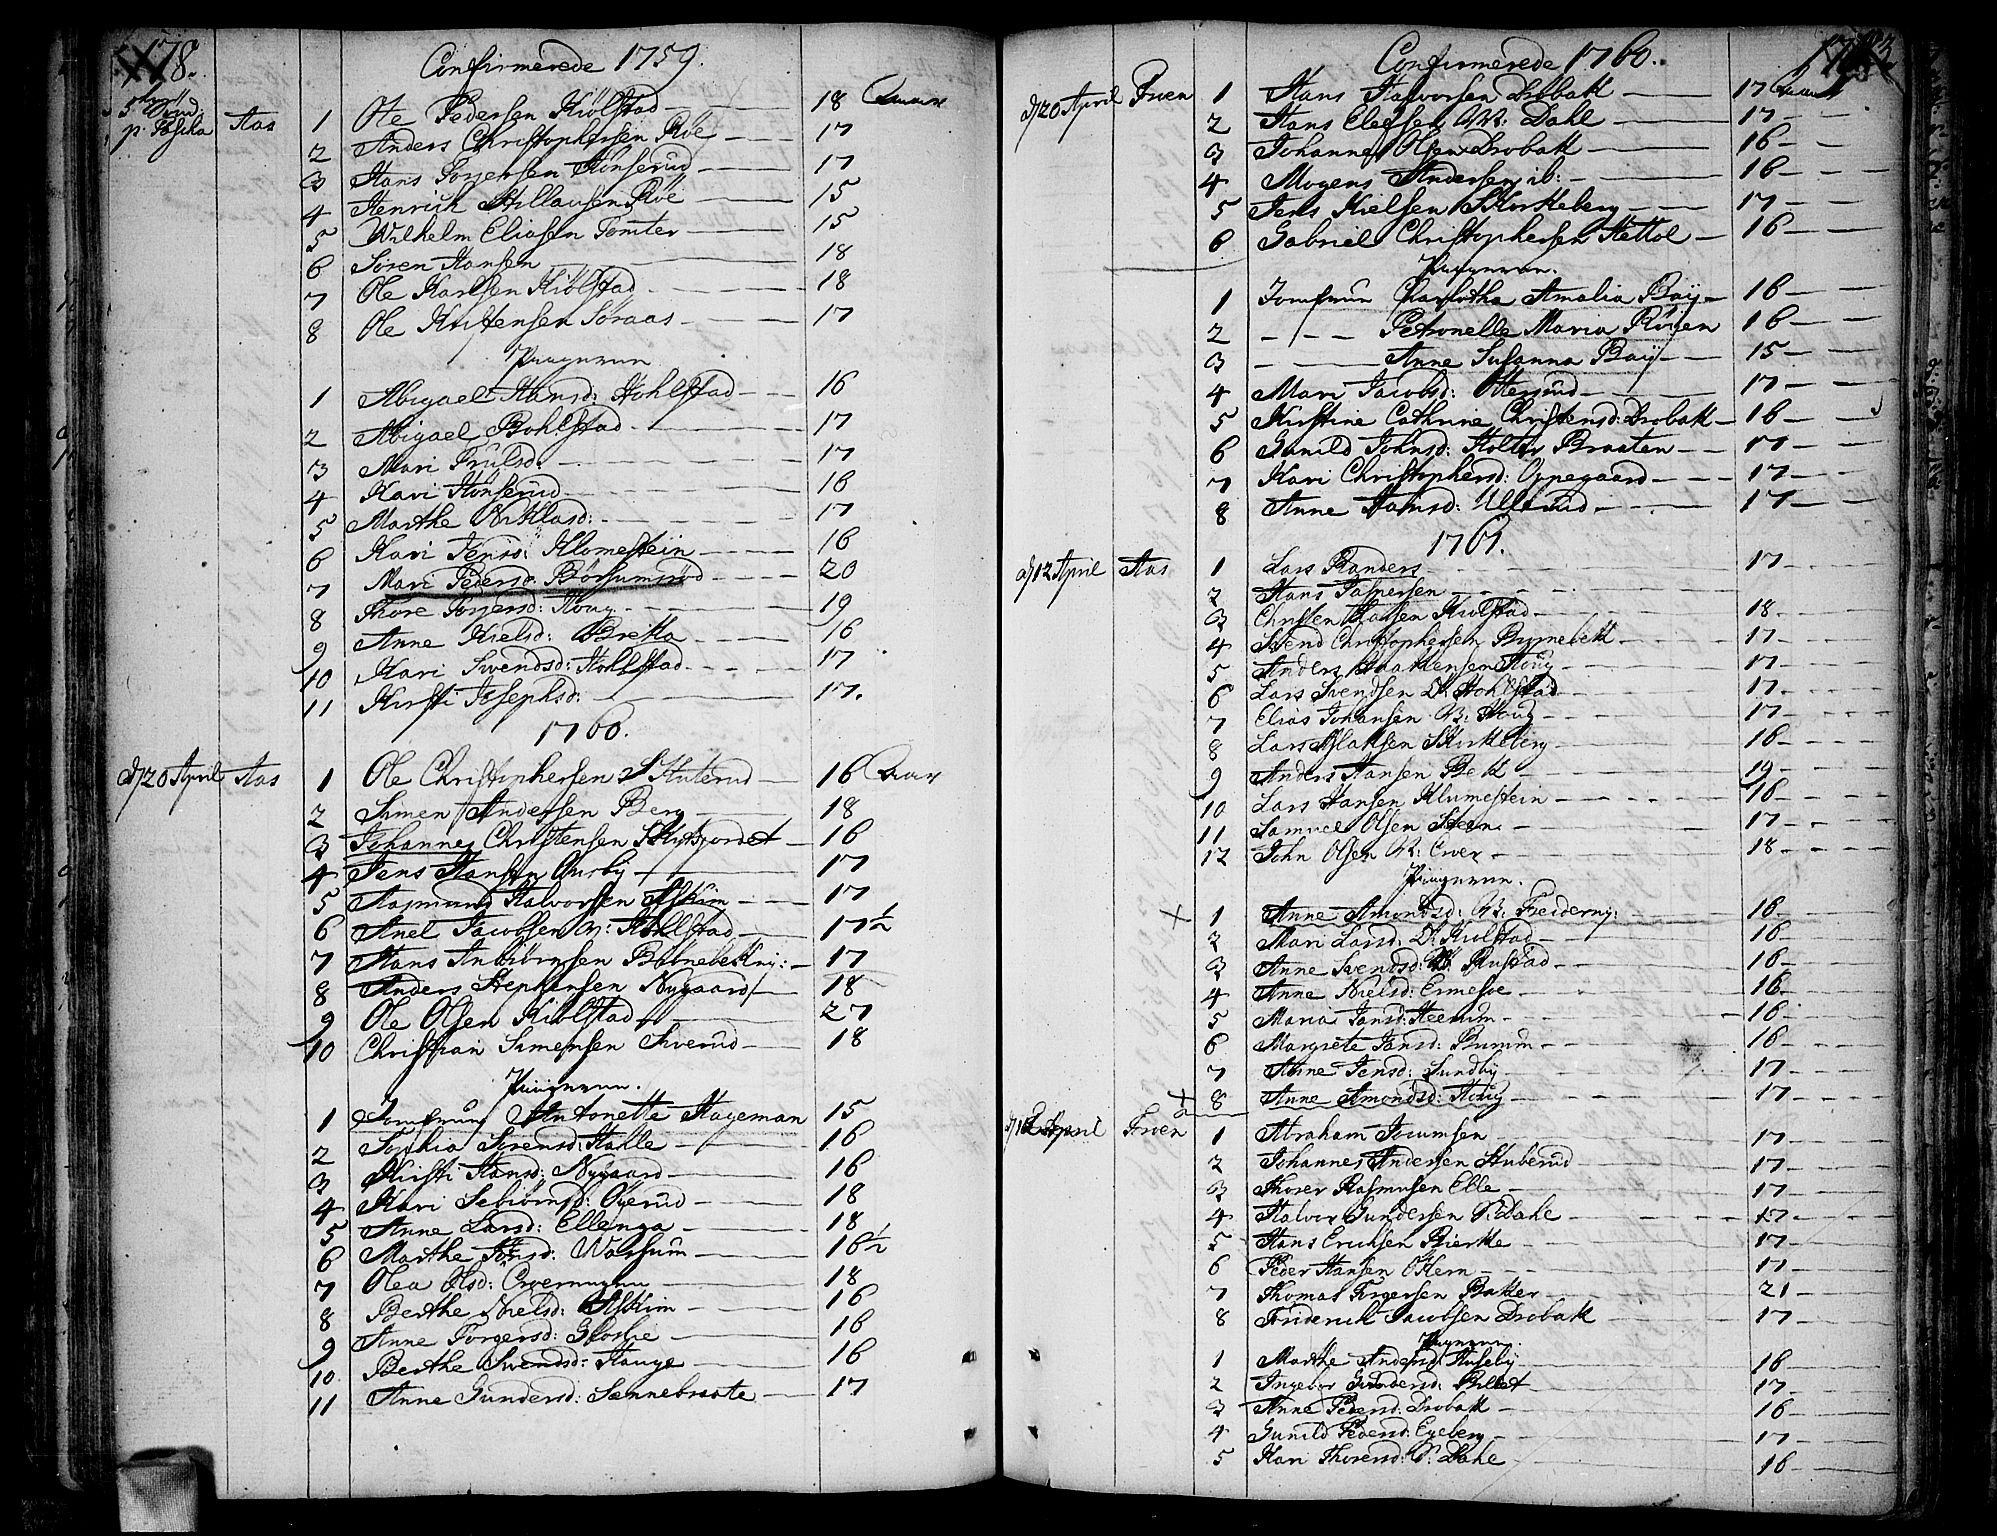 178.
Confirmerede 1759.
5 Dom: p. Pascha Aas 1 Ole Pedersen Kiölstad 18 Aar
2 Anders Christophersen Roe 17
3 Hans Torgersen Honserud 17
4 Henrich Hillausen Roe 15
5 Wilhelm Eliasen Tomter 15
6 Søren Hansen 18
7 Ole Karlsen Kiölstad 18
8 Ole Kristensen Søraas 17
Piigerne
1 Abigael Hansd: Hohlstad 16
2 Abigael Bohlstad 17
3 Mari Trulsd: 17
4 Kari Honserud 16
5 Marthe Niklasd: 17
6 Kari Jensd: Klomestein 16
7 Mari Pedersd: Børsumsrød 20
8 Thore Torgersd: Houg 19
9 Anne Nielsd: Brekka 16
10 Kari Svendsd: Hohlstad 17
11 Kirsti Josephsd: 17.
1760.
d/20 April Aas 1 Ole Christophersen Skuterud 16 Aar
2 Simen Andersen Berg 18
3 Johannes Christensen 16
4 Jens Hansen Aursby 17
5 Halvorsen Askim 17
6 Anel Jacobsen v: Hohlstad 17½
7 Hans 17
8 Anders Stephensen Nygaard 18
9 Ole Olsen Kiölstad 27
10 Christian Simensen Siverud 18
Piigerne.
1 Jomfrue Antonette Hageman 15
2 Sophia Sørensd: Halle 16
3 Kirsti Hansd: Nygaard 16
4 Kari Oyerud 18
5 Anne Larsd: Ellenga 18
6 Marthe Jonsd: Warsum 16½
7 Olea Olsd: 18
8 Berthe Nielsd: Askim 16
9 Anne Torgersd: Gloslie 16
10 Berthe Svendsd: Hauge 16
11 Anne Gundersd: Sennebraate 17
Confirmerede 1760.
d/20 April Froen 1 Hans Halvorsen Drobak 17 Aar
2 Hans Eleesen V: Dahl 17
3 Johannes Olsen Drobak 16
4 Mogens Andersen ib: 16
5 Jens Kielsen Skorkeberg 17
6 Gabriel Christophersen Hettol 16
Piigerne.
1 Jomfrue Charlotha Amalia Baÿ 16
2 Petronelle Maria Røyen 16
3 Anne Susanna Baÿ 15
4 Mari Jacobsd: Ottersrud 17
5 Kirstine Cathrine Christensd: Drobak 16
6 Gunild Johnsd: Holter Braaten 17
7 Kari Christophersd: Oppegaard 17
8 Anne Hansd: Ullerud 17
1761.
d/12 April Aas 1 Lars Randers 17
2 Hans Jaspersen
3 Christen Hansen Kiolstad 18
4 Svend Christophersen Rypnebek 17
5 Anders Haakensen Houg 17
6 Lars Svendsen D: Hohlstad 17
7 Elias Johansen V: Houg 17
8 Lars Aslaksen Skirkeberg 16
9 Anders Hansen Bek 19
10 Lars Hansen Klumestein 16
11 Samuel Olsen Steen 17
12 John Olsen V: Ewer 18
Piigerne.
1 Anne Amondsd: V: 16
2 Mari Larsd: D: Kiolstad 16
3 Anne Svendsd: Rustad 16
4 Anne Nielsd: Ermesoe 16
5 Maria Jansd: 16
6 Margrete Jansd: Burum 16
7 Anne Jensd: Sundby 17
8 Anne Amondsd: Houg 17
April Froen 1 Abraham Jocumsen 17
2 Johannes Andersen Huberud 17
3 Thorer Rasmusen Elle 17
4 Halvor Gundersen N: Dahle 17
5 Hans Erichsen Bierke 17
6 Peder Hansen Okern 17
7 Thomas Torgersen Bakker 21
8 Friderick Jacobsen Drobak 17
Piigerne
1 Marthe Andersd: Huseby 16
2 Ingebor Gundersd: 17
3 Anne Pedersd: Drobak 16
4 Gunild Pedersd: Egeberg 17
5 Kari Thoresd: N: Dahle 16